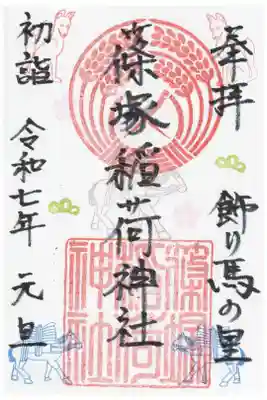 奉拝
飾り馬の里
篠塚稲荷神社
初詣
令和七年 元旦
篠塚
稲荷
神社